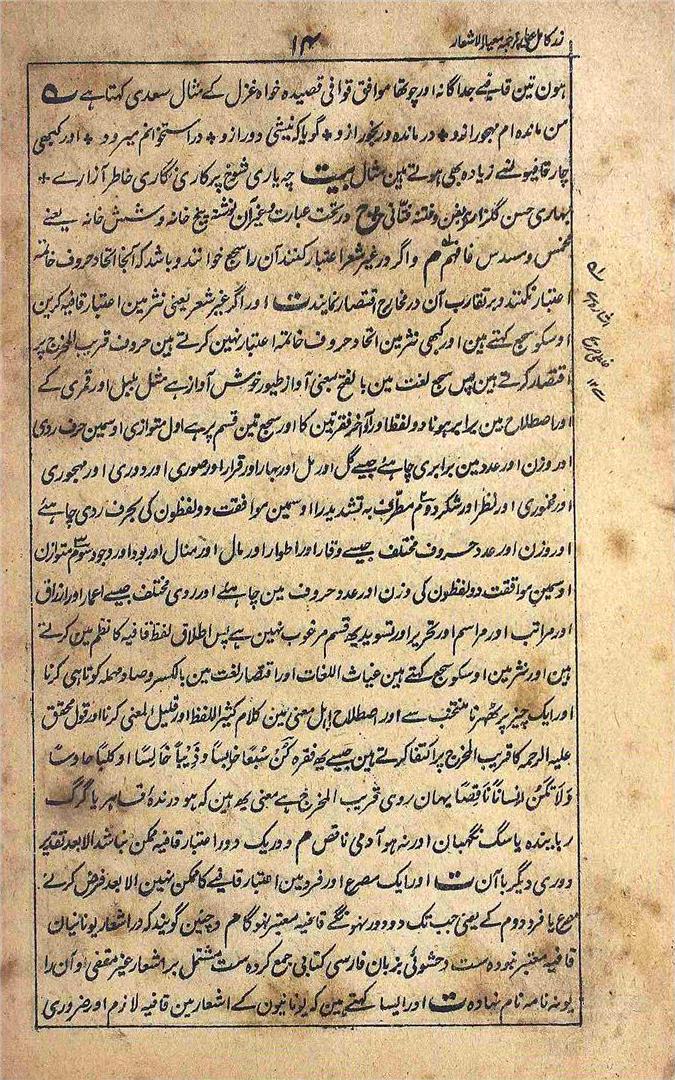 زر کامل عیار ترجمہ معیار الاشعار
۱۴
ہون تین قافیے جداگانہ اور چوتھا موافق قوافی قصیدہ خواہ غزل کے مثال سعدی کہتا ہے ے
من ماندہ ام مہجور ازو * درماندہ و رنجور ازو * گویا کہ نیشی دور ازو * در استخوانم میرود * اور کبھی
چار قافیونسے زیادہ بھی ہوتے ہین مثال بیت چہ یاری شوخ پرکاری نگاری خاطر آزارے *
بہاری حسن گلزاری بفن و فتنہ فتانی ح در تحت عبارت و غیر آن نوشتہ پنج خانہ و شش خانہ یعنے
مخمس و مسدس فافہم م و اگر در غیر شعر اعتبار کنند آن را سجع خوانند و باشد کہ آنجا اتحاد حروف خاتمہ
اعتبار نکنند و بر تقارب آن در مخارج اقتصار نمایند ت اور اگر غیر شعر یعنی نثر مین اعتبار قافیہ کرین
اوسکو سجع کہتے ہین اور کبھی نثر مین اتحاد حروف خاتمہ اعتبار نہین کرتے ہین حروف قریب المخرج پر
اقتصار کرتے ہین پس سجع لغت مین بالفتح بمعنی آواز طیور خوش آواز ہے مثل بلبل اور قمری کے
اور اصطلاح مین برابر ہونا دو لفظ اور آخر فقرتین کا اور سجع تین قسم پر ہے اول متوازی اوسمین حرف روی
اور وزن اور عدد مین برابری چاہئے جیسے گل اور مل اور بہار اور قرار اور صوری اور دوری اور مہجوری
اور مخموری اور نظر اور شکر دوم مطرف بہ تشدید را اوسمین موافقت دو لفظون کی بحرف ردی چاہئے
اور وزن اور عدد حروف مختلف جیسے وقار اور اطوار اور مال اور منال اور بود اور وجود سوم متوازن
اوسمین موافقت دو لفظون کی وزن اور عدد حروف مین چاہئے اور روی مختلف جیسے اعمار اور ارزاق
اور مراتب اور مراسم اور تحریر اور تسوید یہ قسم مرغوب نہین ہے پس اطلاق لفظ قافیہ کا نظم مین کرتے
ہین اور نثر مین اوسکو سجع کہتے ہین غیاث اللغات اور اقتصار لغت مین بالکسر و صاد مہملہ کوتاہی کرنا
اور ایک چیز پر ٹھہرنا منتخب سے اور اصطلاح اہل معنی مین کلام کثیر اللفظ اور قلیل المعنی کرنا اور قول محقق
علیہ الرحمہ کا قریب المخرج پر اکتفا کرتے ہین جیسے یہ فقرہ کُنْ سَبُعًا خَابِسًا وَ ذِئْبًا خَالِسًا اَو کَلْبًا حَارِسًا
وَلَا تَکُنْ اِنْسَانًا نَاقِصًا یہان روی قریب المخرج ہے معنی یہ ہین کہ ہو درندۂ قاہر یا گرگ
ربایندہ یا سگ نگہبان اور نہ ہو آدمی ناقص م و در یک دور اعتبار قافیہ ممکن نباشد الا بعد تقدیر
دوری دیگر با آن ت اور ایک مصرع اور فرد مین اعتبار قافیے کا ممکن نہین الا بعد فرض کرنے
مصرع یا فرد دوم کے یعنی جب تک دو دور نہونگے قافیہ معتبر نہوگا م و چنین گویند کہ در اشعار یونانیان
قافیہ معتبر نبودہ ست و حشوئی بزبان فارسی کتابی جمع کردہ ست مشتمل بر اشعار غیر مقفی و آن را
یوبہ نامہ نام نہادہ ت اور ایسا کہتے ہین کہ یونانیون کے اشعار مین قافیہ لازم اور ضروری